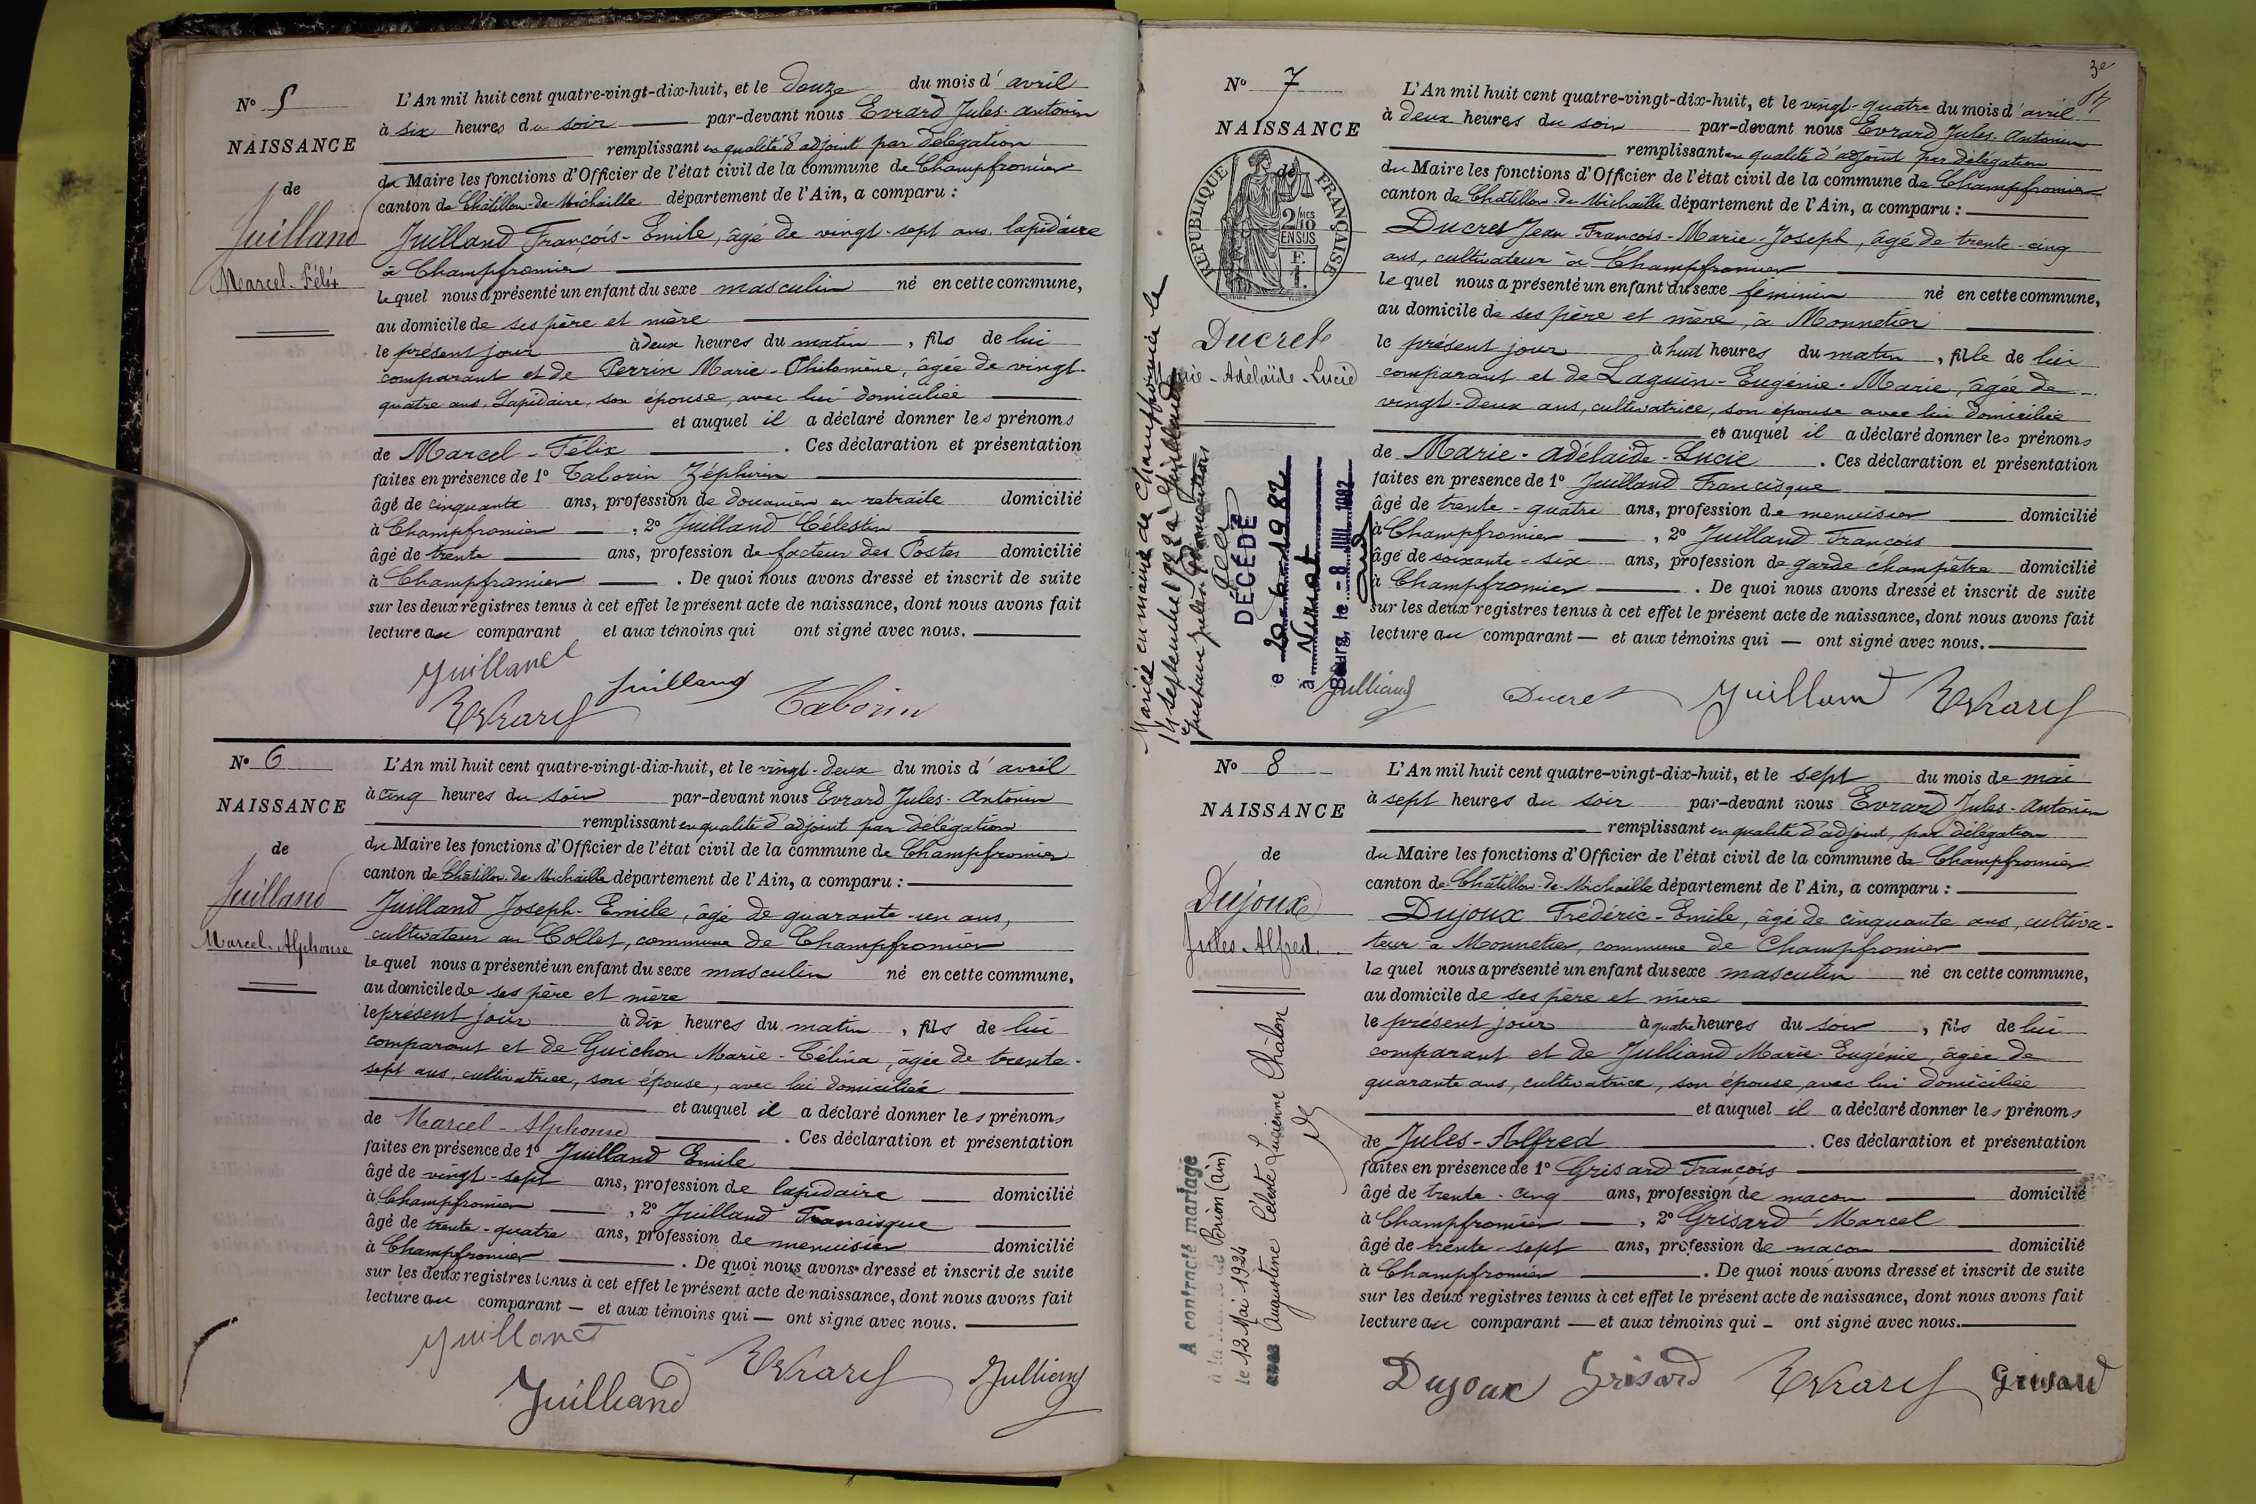 N° 5
NAISSANCE
de
Juilland
Marcel-Félix
L'An mil huit cent quatre-vingt-dix-huit, et le douze du mois d'avril
à six heures du soir par-devant nous Evrard Jules-Antonin
remplissant en qualité d'adjoint par délégation
du Maire les fonctions d'Officier de l'état civil de la commune de Champfromier
canton de Châtillon-de-Michaille département de l'Ain, a comparu :
Juilland François-Emile, âgé de vingt-sept ans, lapidaire
à Champfromier
lequel nous a présenté un enfant du sexe masculin né en cette commune,
au domicile de ses père et mère
le présent jour à deux heures du matin, fils de lui
comparant et de Perrin Marie-Philomène, âgée de vingt-
quatre ans, Lapidaire, son épouse, avec lui domiciliée
et auquel il a déclaré donner les prénoms
de Marcel-Félix. Ces déclaration et présentation
faites en présence de 1° Taborin Zéphirin
âgé de cinquante ans, profession de douanier en retraite domicilié
à Champfromier, 2° Juilland Célestin
âgé de trente ans, profession de facteur des Postes domicilié
à Champfromier. De quoi nous avons dressé et inscrit de suite
sur les deux registres tenus à cet effet le présent acte de naissance, dont nous avons fait
lecture au comparant et aux témoins qui ont signé avec nous.
Juilland
Evrard Juilland Taborin
N° 6
NAISSANCE
de
Juilland
Marcel-Alphonse
L'An mil huit cent quatre-vingt-dix-huit, et le vingt-deux du mois d'avril
à cinq heures du soir par-devant nous Evrard Jules-Antonin
remplissant en qualité d'adjoint par délégation
du Maire les fonctions d'Officier de l'état civil de la commune de Champfromier
canton de Châtillon-de-Michaille département de l'Ain, a comparu :
Juilland Joseph-Emile, âgé de quarante-un ans,
cultivateur au Collet, commune de Champfromier
lequel nous a présenté un enfant du sexe masculin né en cette commune,
au domicile de ses père et mère
le présent jour à dix heures du matin, fils de lui
comparant et de Guichon Marie-Célina, âgée de trente-
sept ans, cultivatrice, son épouse, avec lui domiciliée
et auquel il a déclaré donner les prénoms
de Marcel-Alphonse. Ces déclaration et présentation
faites en présence de 1° Juilland Emile
âgé de vingt-sept ans, profession de lapidaire domicilié
à Champfromier, 2° Juilland Francisque
âgé de trente-quatre ans, profession de menuisier domicilié
à Champfromier. De quoi nous avons dressé et inscrit de suite
sur les deux registres tenus à cet effet le présent acte de naissance, dont nous avons fait
lecture au comparant — et aux témoins qui — ont signé avec nous.
Juilland
Juilliand Evrard Julliand
3e
N° 7
NAISSANCE
de
RÉPUBLIQUE FRANÇAISE
2/10 MES
EN SUS
Ducret
Marie-Adélaïde-Lucie
Mariée en mairie de Champfromier le
14 septembre
DÉCÉDÉ
à Nurieux
L'An mil huit cent quatre-vingt-dix-huit, et le vingt-quatre du mois d'avril
à deux heures du soir par-devant nous Evrard Jules-Antonin
remplissant en qualité d'adjoint par délégation
du Maire les fonctions d'Officier de l'état civil de la commune de Champfromier
canton de Châtillon-de-Michaille département de l'Ain, a comparu :
Ducret Jean-François-Marie-Joseph, âgé de trente-cinq
ans, cultivateur à Champfromier
lequel nous a présenté un enfant du sexe féminin né en cette commune,
au domicile de ses père et mère, à Monnetier
le présent jour à huit heures du matin, fille de lui
comparant et de Laguin-Eugénie-Marie, âgée de
vingt-deux ans, cultivatrice, son épouse avec lui domiciliée
et auquel il a déclaré donner les prénoms
de Marie-Adélaïde-Lucie. Ces déclaration et présentation
faites en présence de 1° Juilland Francisque
âgé de trente-quatre ans, profession de menuisier domicilié
à Champfromier, 2° Juilland François
âgé de soixante-six ans, profession de garde champêtre domicilié
à Champfromier. De quoi nous avons dressé et inscrit de suite
sur les deux registres tenus à cet effet le présent acte de naissance, dont nous avons fait
lecture au comparant — et aux témoins qui — ont signé avec nous.
Julliand Ducret Juilland Evrard
N° 8
NAISSANCE
de
Dujoux
Jules-Alfred.
A contracté mariage
à la mairie de Brion (Ain)
le 12 Mai 1924
avec Augustine Céleste Lucienne Châlon
L'An mil huit cent quatre-vingt-dix-huit, et le sept du mois de mai
à sept heures du soir par-devant nous Evrard Jules-Antonin
remplissant en qualité d'adjoint, par délégation
du Maire les fonctions d'Officier de l'état civil de la commune de Champfromier
canton de Châtillon-de-Michaille département de l'Ain, a comparu :
Dujoux Frédéric-Emile, âgé de cinquante ans, cultiva-
teur à Monnetier, commune de Champfromier
lequel nous a présenté un enfant du sexe masculin né en cette commune,
au domicile de ses père et mère
le présent jour à quatre heures du soir, fils de lui
comparant et de Julliand Marie-Eugénie, âgée de
quarante ans, cultivatrice, son épouse avec lui domiciliée
et auquel il a déclaré donner les prénoms
de Jules-Alfred. Ces déclaration et présentation
faites en présence de 1° Grisard François
âgé de trente-cinq ans, profession de maçon domicilié
à Champfromier, 2° Grisard Marcel
âgé de trente-sept ans, profession de maçon domicilié
à Champfromier. De quoi nous avons dressé et inscrit de suite
sur les deux registres tenus à cet effet le présent acte de naissance, dont nous avons fait
lecture au comparant — et aux témoins qui — ont signé avec nous.
Dujoux Grisard Evrard Grisard